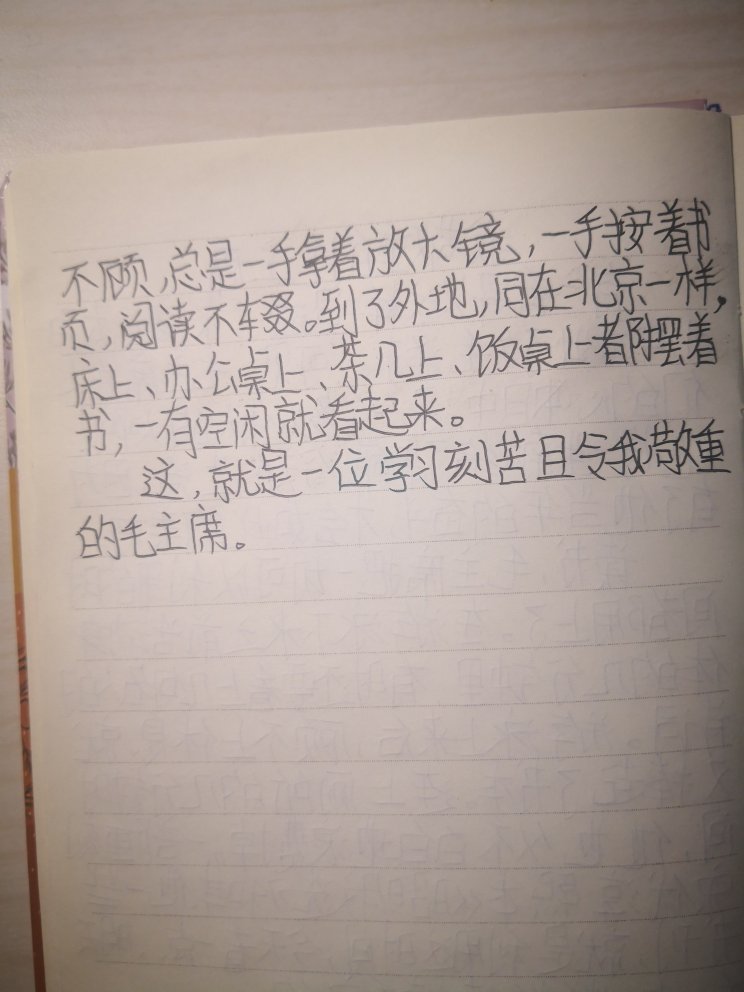 不顾,总是一手拿着放大镜,一手按着书
页,阅读不辍。到了外地,同在北京一样,
床上、办公桌上、茶几上、饭桌上都摆着
书,一有空闲就看起来。
这,就是一位学习刻苦且令我敬重
的毛主席。